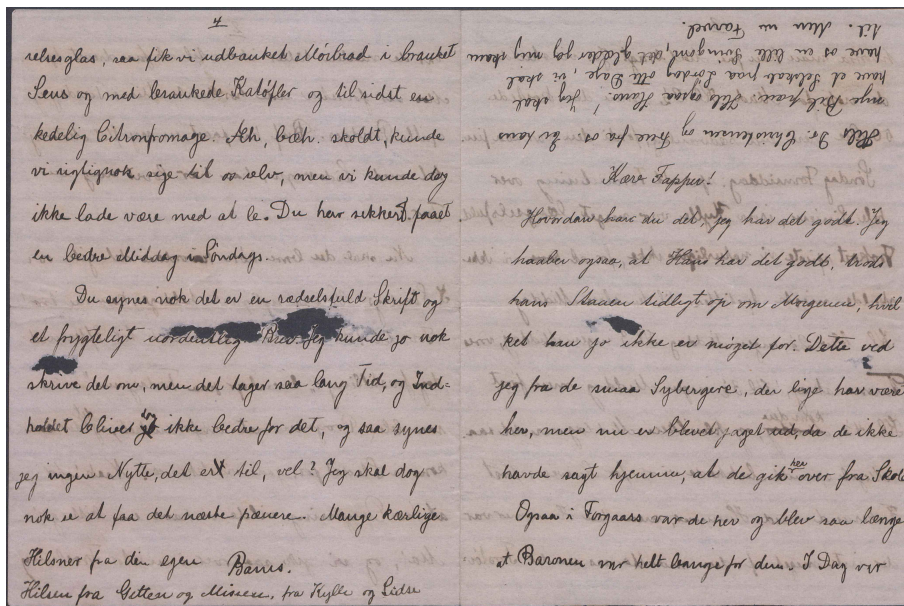 4
relsesglas, saa fik vi udbanket Mörbrad i brauket
Saus og med braukede Katöfler og til sidst en
kedelig Citronfomage. Æh, bæh. skoldt, kunde
vi rigtignok sige til os selv, men vi kunde dog
ikke lade være med at le. Du har sikkert faaet
en bedre Middag i Söndags.
Du synes nok det er en rædselsfuld Skrift og
et frygteligt uordentlig Brev. Jeg kunde jo nok
skrive det om, men det tager saa lang Tid, og Ind=
holdet bliver jo ikke bedre for det, og saa synes
jeg ingen Nytte, det er til, vel? Jeg skal dog
nok se at faa det næste pænere. Mange kærlige
Hilsner fra din egen
Bams.
Hilsen fra Gitten og Missen, fra Kylle og Sidse
Hils Dr. Christensen og Frue fra os
"Jeg skal
have et Selskab paa Lördag otte Dage, vi skal
have os en lille Svingom, det glæder jeg mig
til. Men nu Farvel.
Kære Fappu!
Hvordan har du det, jeg har det godt. Jeg
haaber ogsaa, at Hans har det godt, trods
hans Staaen tidligt op om Morgenen, hvil
ket han jo ikke er möget for. Dette ved
jeg fra de smaa Sybergere, der lige har være
her, men nu er blevet jaget ud, da de ikke
havde sagt hjemme, at de gik her over fra Skole
Ogsaa i Forgaars var de her og blev saa længe
at Baronen var helt bange for dem. I Dag var